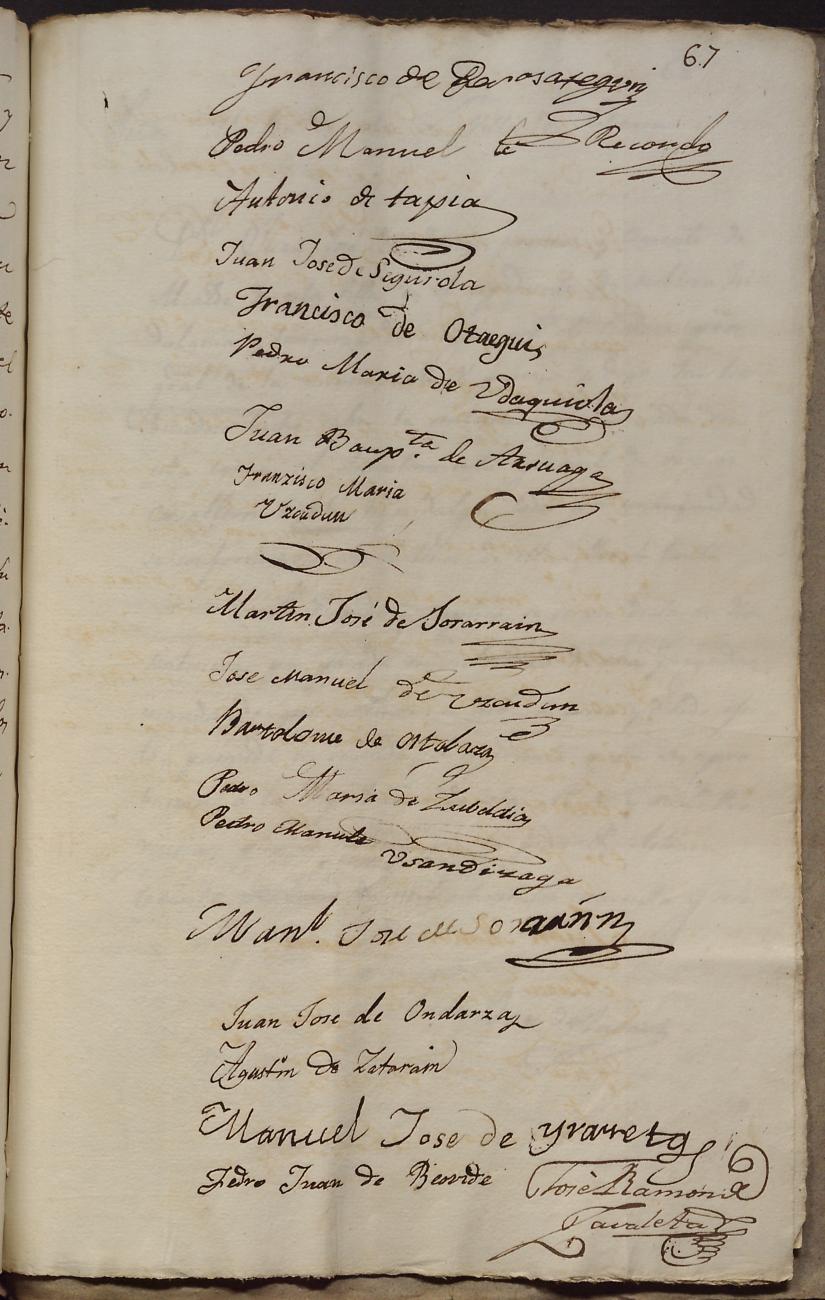 67
Francisco de
Pedro Manuel de Recondo
Antonio de tapia
Juan Jose de Segurola
Francisco de Otaegui
Pedro Maria de Vdaquiola
Juan Baupta. de Arsuaga
Franzisco Maria
Vzcudun
Martin José de Sorarrain
Jose Manuel de Vzcudun
Bartolome de
Pedro Maria de Zubeldia
Pedro Manuel
Vsandizaga
Manl. Jose de
Juan Jose de Ondarza
Agustin de Zatarain
Manuel Jose de yrarreta
Pedro Juan de Beovide
José Ramon de
Zavaleta